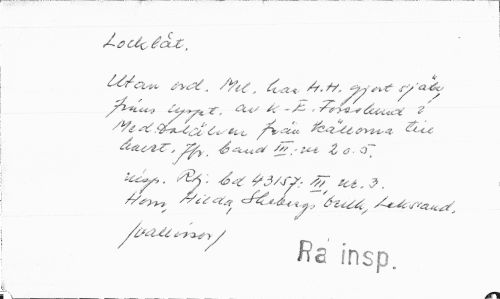 Locklåt.
Utan ord. Mel. har H.H. gjort själv,
finns uppt. av K-E. Forsslund i
Med Dalälven från källorna till
havet. Jfr. band III: nr 20.5.
insp. Rtj. Gd 43157: III, nr. 3.
Horn, Hilda, Skebergs bruk, Leksand.
/vallvisor/
Ra insp.